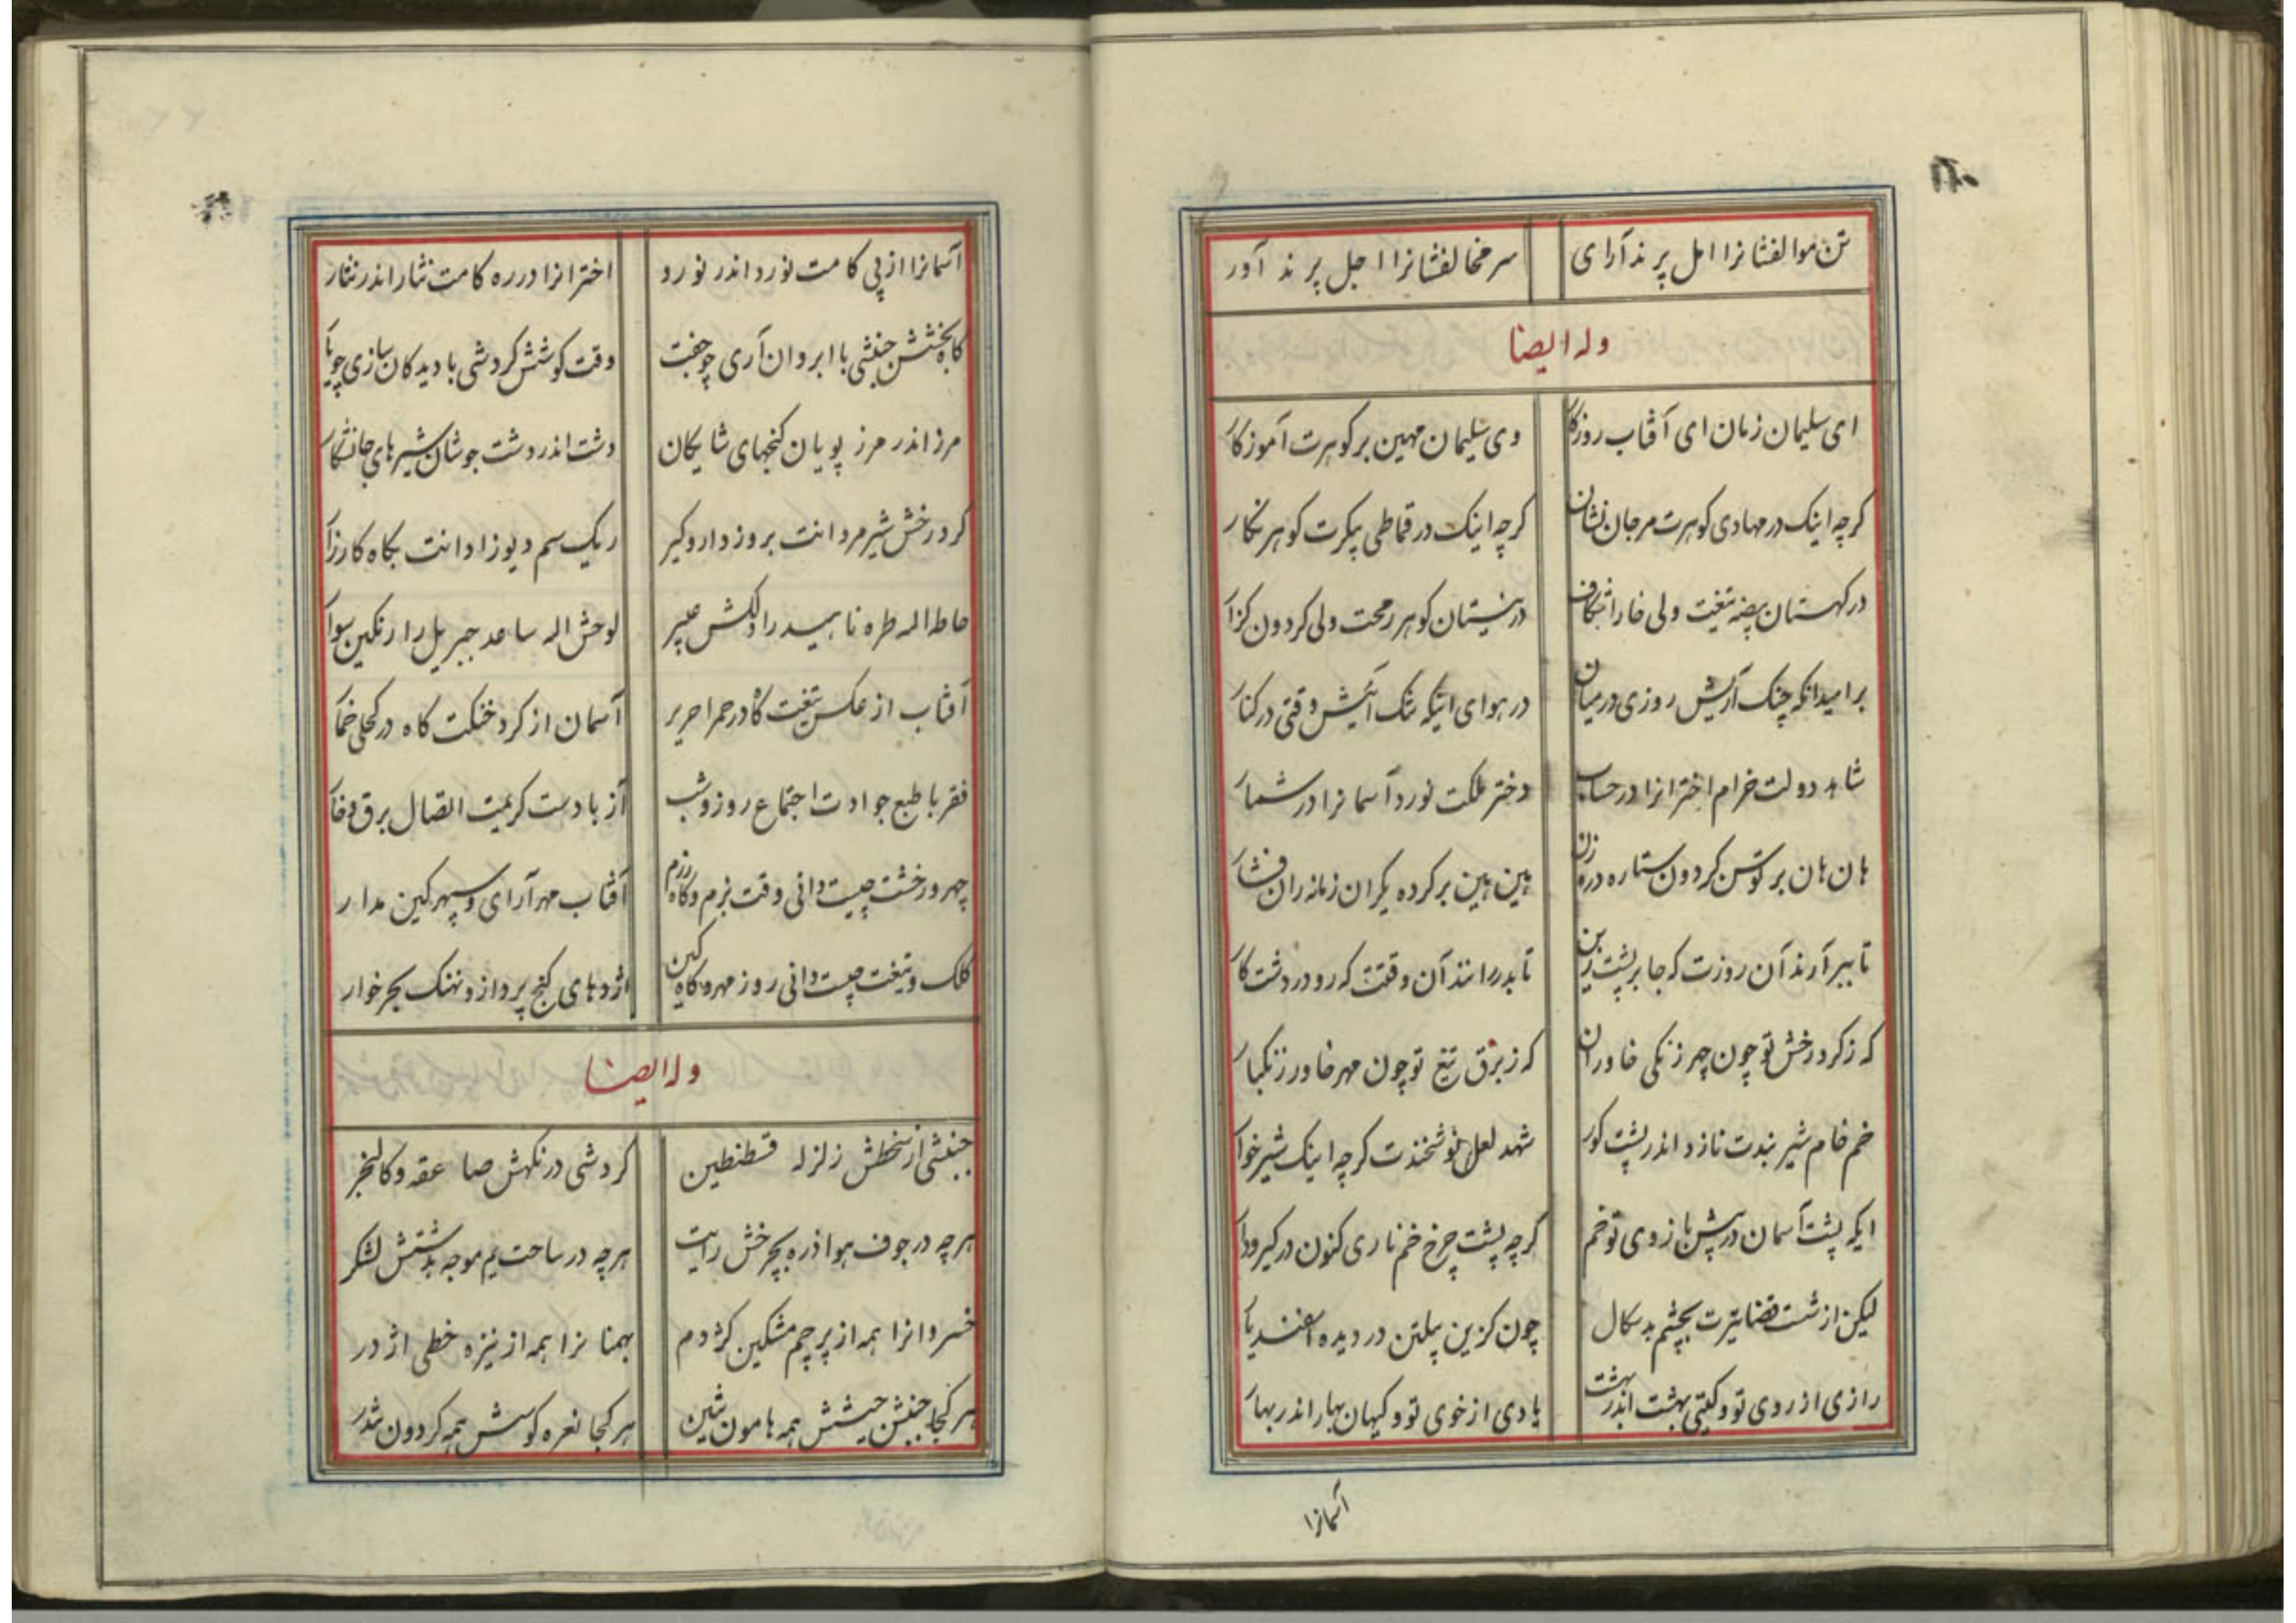 تن موالفشانرا امل پرند آرای سر مخالفشانرا اجل پرند آور
وله ایضا
ای سلیمان زمان ای آفتاب روزکار وی سلیمان مهین بر کوهرت آموزکار
کرچه اینک در مهادی کوهرت مرجان نشان کرچه اینک در قماطی پیکرت کوهر نکار
در کهستان بیضه تیغت ولی خارا شکاف در نیستان کوهر رمحت ولی کردون کزار
بر امید انکه چنک آریش روزی در میان در هوای اینکه تنک آئیش وقتی در کنار
شاهد دولت خرام اخترانرا در حساب دختر ملکت نورد آسمانرا در شمار
هان هان بر توسن کردون ستاره در وزن هین هین بر کرده یکران زمانه ران فشار
تا ببر آرند آن روزت که جا بر پشت زین تا بدر رانند آن وقتت که رو در دشت کار
که ز کرد رخش تو چون چهر زنکی خاوران که ز برق تیغ تو چون مهر خاور زنکبار
خم خام شیر بندت نازد اندر پشت کور شهد لعل نوشخندت کرچه اینک شیر خوار
ایکه پشت آسمان در پیش بازوی تو خم کرچه پشت چرخ خم ناری کنون در کیر ودار
لیکن از شست قضا تیرت بچشم بد سکال چون کزین پیلتن در دیده اسفندیار
رازی از روی تو و کیتی بهشت اندر بهشت یادی از خوی تو و کیهان بهار اندر بهار
آسمانرا
آسمانرا از پی کامت نورد اندر نورد اخترانرا در ره کامت نثار اندر نثار
کاه بخشش جنبشی با ابروان آری چو جفت وقت کوشش کردشی با دیدکان سازی چو یار
مرز اندر مرز پویان کنجهای شایکان دشت اندر دشت جوشان شیرهای جانشکار
کرد رخش شیر مردانت بروز دار وکیر ریک سم دیوزادانت بکاه کارزار
حاط اله طره ناهید را دلکش عبیر لوحش اله ساعد جبریل را رنکین سوار
آفتاب از عکس تیغت کاه در حمرا حریر آسمان از کرد خنکت کاه در کحلی خمار
فقر با طبع جوادت اجتماع روز وشب آز با دست کریمت اتصال برق وخار
چهر ورخشت چیست دانی وقت بزم وکاه رزم آفتاب مهر آرای وسپهر کین مدار
کلک وتیغت چیست دانی روز مهر وکاه کین اژدهای کنج پرداز ونهنک بحر خوار
وله ایضا
جنبشی از سخطش زلزله قسطنطین کردشی در نکهش صاعقه وکالنجر
هرچه در جوف هوا ذره بچرخش رایت هرچه در ساحت یم موجه بدشتش لشکر
خسروانرا همه از پرچم مشکین کژدم بهمنانرا همه از نیزه خطی اژدر
هر کجا جنبش جیشش همه هامون شین هر کجا نعره کوسش همه کردون شدر